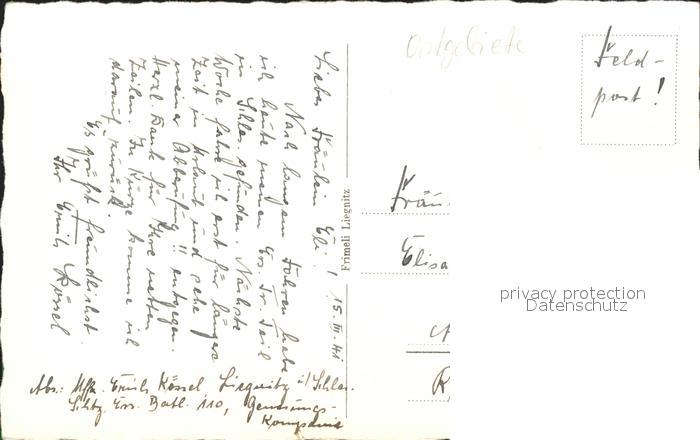 Ostgebiete
Feld-
post!
Liebes Fräulein Eli!
15.III.41
Nach langem Fahren habe
ich heute meinen Ers. Tr. Teil
in Schles. gefunden. Nächste
Woche fahre ich erst für längere
Zeit in Urlaub und sehe
meiner Abberufung!! entgegen.
Herzl. Dank für Ihre netten
Zeilen. In Kürze komme ich
darauf zurück.
Es grüßt freundlichst
Ihr Erich Kössel
Frimeli Liegnitz
Fräu
Elisa
R
Abs.: Uffz. Erich Kössel Liegnitz i/Schles.
Schtz. Ers. Batl. 110, Genesungs-
Kompanie
privacy protection
Datenschutz